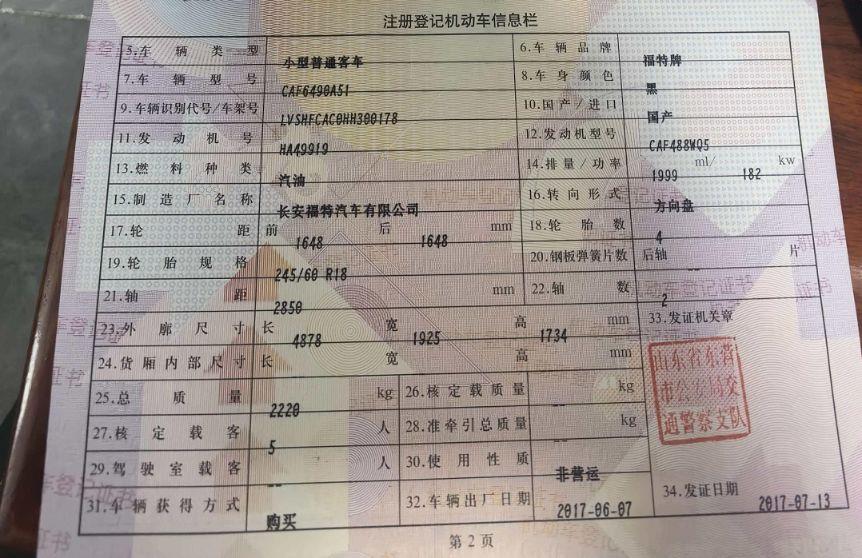 注册登记机动车信息栏
5.车辆类型 小型普通客车 6.车辆品牌 福特牌
7.车辆型号 CAF6490A51 8.车身颜色 黑
9.车辆识别代号/车架号 LVSHFCAC0HH300178 10.国产/进口 国产
11.发动机号 HA49919 12.发动机型号 CAF488WQ5
13.燃料种类 汽油 14.排量/功率 1999 ml/ 182 kw
15.制造厂名称 长安福特汽车有限公司 16.转向形式 方向盘
17.轮距 前 1648 后 1648 mm 18.轮胎数 4
19.轮胎规格 245/60 R18 20.钢板弹簧片数 后轴 -- 片
21.轴距 2850 mm 22.轴数 2
23.外廓尺寸 长 4878 宽 1925 高 1734 mm 33.发证机关章
24.货厢内部尺寸 长 宽 高 mm
山东省东营
市公安局交
通警察支队
25.总质量 2220 kg 26.核定载质量 -- kg
27.核定载客 5 人 28.准牵引总质量 -- kg
29.驾驶室载客 -- 人 30.使用性质 非营运
31.车辆获得方式 购买 32.车辆出厂日期 2017-06-07 34.发证日期 2017-07-13
第2页